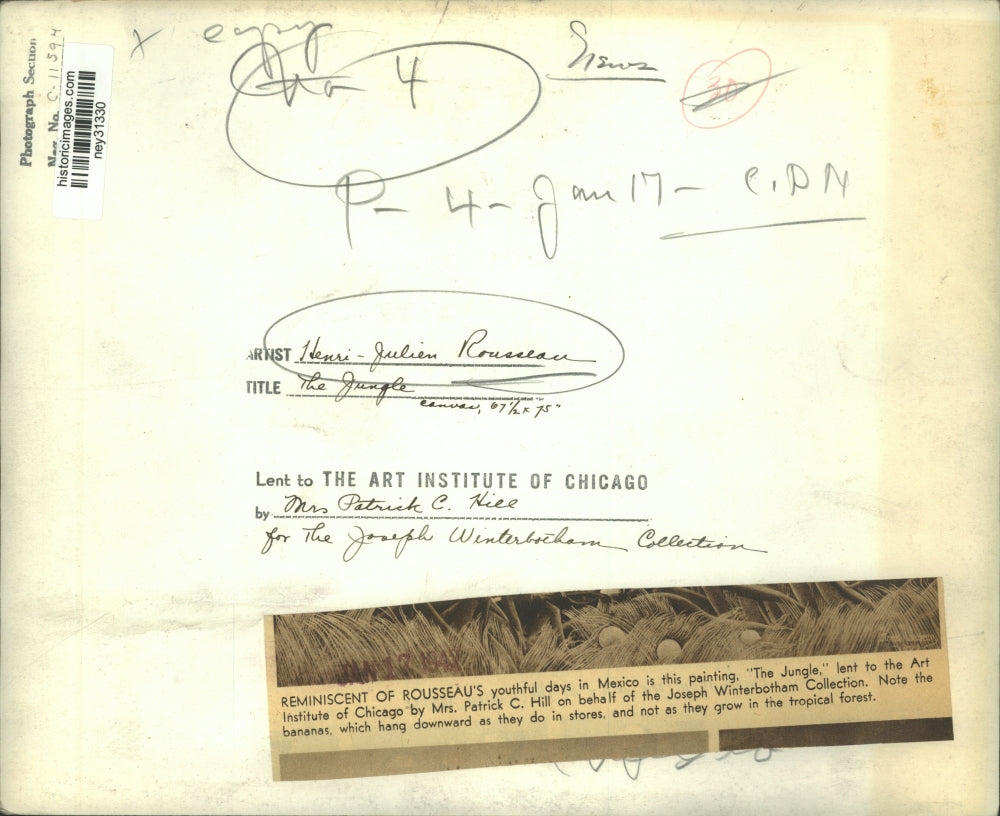 Photograph Section
Neg. No. C-11594
historicimages.com
ney31330
X
copy
No 4
News
30
P- 4- Jan 17- C.D.N
ARTIST Henri-Julien Rousseau
TITLE The Jungle
canvas, 67½ x 75"
Lent to THE ART INSTITUTE OF CHICAGO
by Mrs Patrick C. Hill
for The Joseph Winterbotham Collection
REMINISCENT OF ROUSSEAU'S youthful days in Mexico is this painting, "The Jungle," lent to the Art
Institute of Chicago by Mrs. Patrick C. Hill on behalf of the Joseph Winterbotham Collection. Note the
bananas, which hang downward as they do in stores, and not as they grow in the tropical forest.